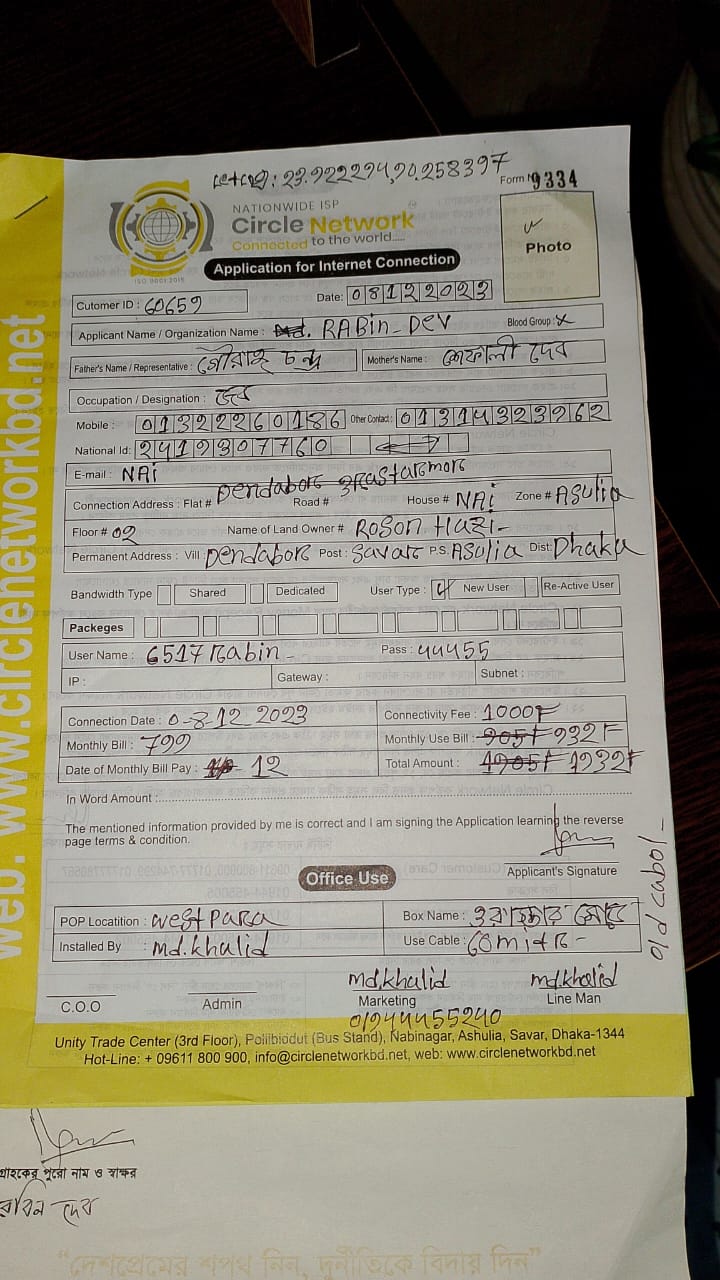 Let+Long: 23.922294,90.258397
Form № 9334
NATIONWIDE ISP
Circle Network
Connected to the world.....
ISO 9001:2015
Photo
Application for Internet Connection
Cutomer ID : 60659
Date: 08122023
Applicant Name / Organization Name : RABin-Dev Blood Group : x
Father's Name / Representative : গৌরাঙ্গ চন্দ্র Mother's Name : শেফালী দেব
Occupation / Designation :
Mobile : 01322260186 Other Contact : 01314323962
National Id: 2419307760
E-mail : NAi
Connection Address : Flat # Dendabor Road # House # NAi Zone # ASulia
Floor # 02 Name of Land Owner # ROSON HAZi-
Permanent Address : Vill : Dendabor Post : Savar P.S. ASulia Dist: Dhaka
Bandwidth Type Shared Dedicated User Type : New User Re-Active User
Packeges
User Name : 6517Rabin- Pass : 44455
IP : Gateway : Subnet :
Connection Date : 0-8-12-2023 Connectivity Fee : 1000F
Monthly Bill : 799 Monthly Use Bill : 905F 932F
Date of Monthly Bill Pay : 12 Total Amount : 1905F 1932F
In Word Amount :
The mentioned information provided by me is correct and I am signing the Application learning the reverse
page terms & condition.
Applicant's Signature
Office Use
POP Locatition : west PaRa Box Name :
Installed By : md.khalid Use Cable : 60mitR-
old cabol-
md.khalid md.khalid
C.O.O Admin Marketing Line Man
01944455240
Unity Trade Center (3rd Floor), Pollibiodut (Bus Stand), Nabinagar, Ashulia, Savar, Dhaka-1344
Hot-Line: + 09611 800 900, info@circlenetworkbd.net, web: www.circlenetworkbd.net
web: www.circlenetworkbd.net
গ্রাহকের পুরো নাম ও স্বাক্ষর
রাবিন দেব
“দেশপ্রেমের শপথ নিন, দুর্নীতিকে বিদায় দিন”